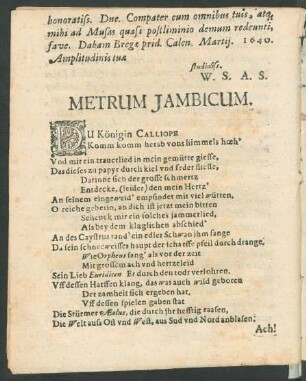 honoratiss. Dne. Compater cum omnibus tuis, atq;
mihi ad Musas quasi postliminio demum redeunti,
fave. Dabam Bregæ prid. Calen. Martij. 1640.
Amplitudinis tuæ
studiosiss.
W. S. A. S.
METRUM JAMBICUM.
DU Königin CALLIOPE
Komm komm herab vons himmels höh'
Vnd mir ein traurlied in mein gemütte giesse,
Das dieses zu papyr durch kiel vnd feder fliesse,
Darinne sich der grosse schmertz
Entdecke, (leider) den mein Hertz'
An seinem eingeweid' empfindet mit viel wütten,
O reiche geberin, an dich ist jetzt mein bitten
Schenck mir ein solches jammerlied,
Als bey dem kläglichen abschied'
An des Caystrus rand' ein edler Schwan ihm sange
Da sein schneeweisses haupt der schaffe pfeil durch drange.
Wie Orpheus sang' als vor der zeit
Mit grossem ach vnd hertzeleid
Sein Lieb Euridicen Er durch den todt verlohren.
Vff dessen Harffen klang, das was auch wild geboren
Det zamheit sich ergeben hat,
Vff dessen spielen gaben stat
Die Stürmer Æolus, die durch ihr hefftig raasen,
Die Welt auß Ost vnd West, aus Sud vnd Nord anblasen;
Ach!